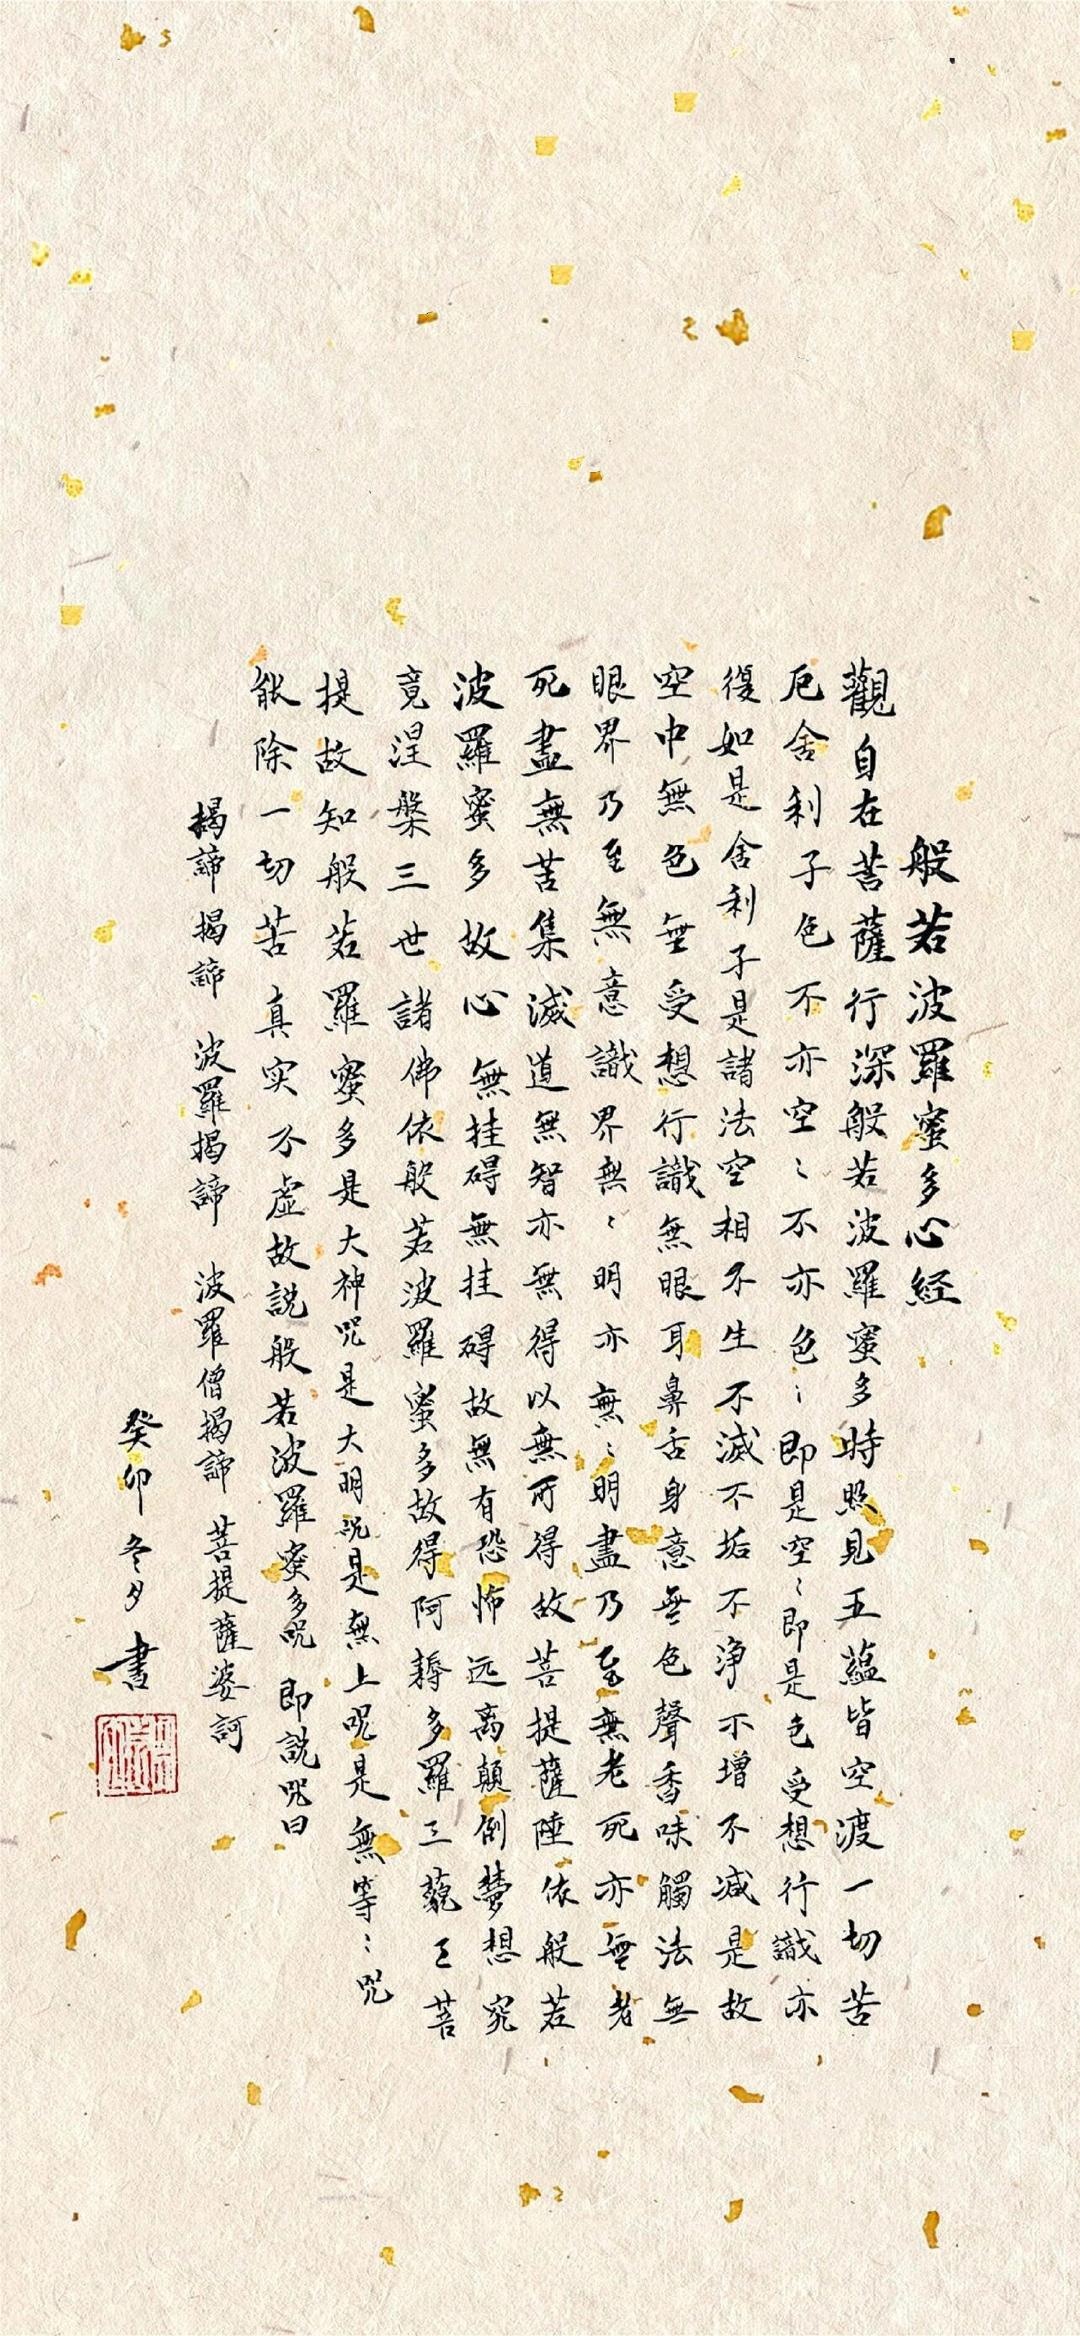 般若波羅蜜多心経
觀自在菩薩行深般若波羅蜜多時照見五蘊皆空渡一切苦
厄舍利子色不亦空〻不亦色〻即是空〻即是色受想行識亦
復如是舍利子是諸法空相不生不滅不垢不净不增不减是故
空中無色無受想行識無眼耳鼻舌身意無色聲香味觸法無
眼界乃至無意識界無〻明亦無〻明盡乃至無老死亦無老
死盡無苦集滅道無智亦無得以無所得故菩提薩埵依般若
波羅蜜多故心無挂碍無挂碍故無有恐怖远离顛倒夢想究
竟涅槃三世諸佛依般若波羅蜜多故得阿耨多羅三藐三菩
提故知般若羅蜜多是大神咒是大明咒是無上呪是無等〻咒
能除一切苦真实不虚故説般若波羅蜜多呪即説咒曰
揭諦揭諦 波羅揭諦 波羅僧揭諦 菩提薩婆訶
癸卯冬夕書